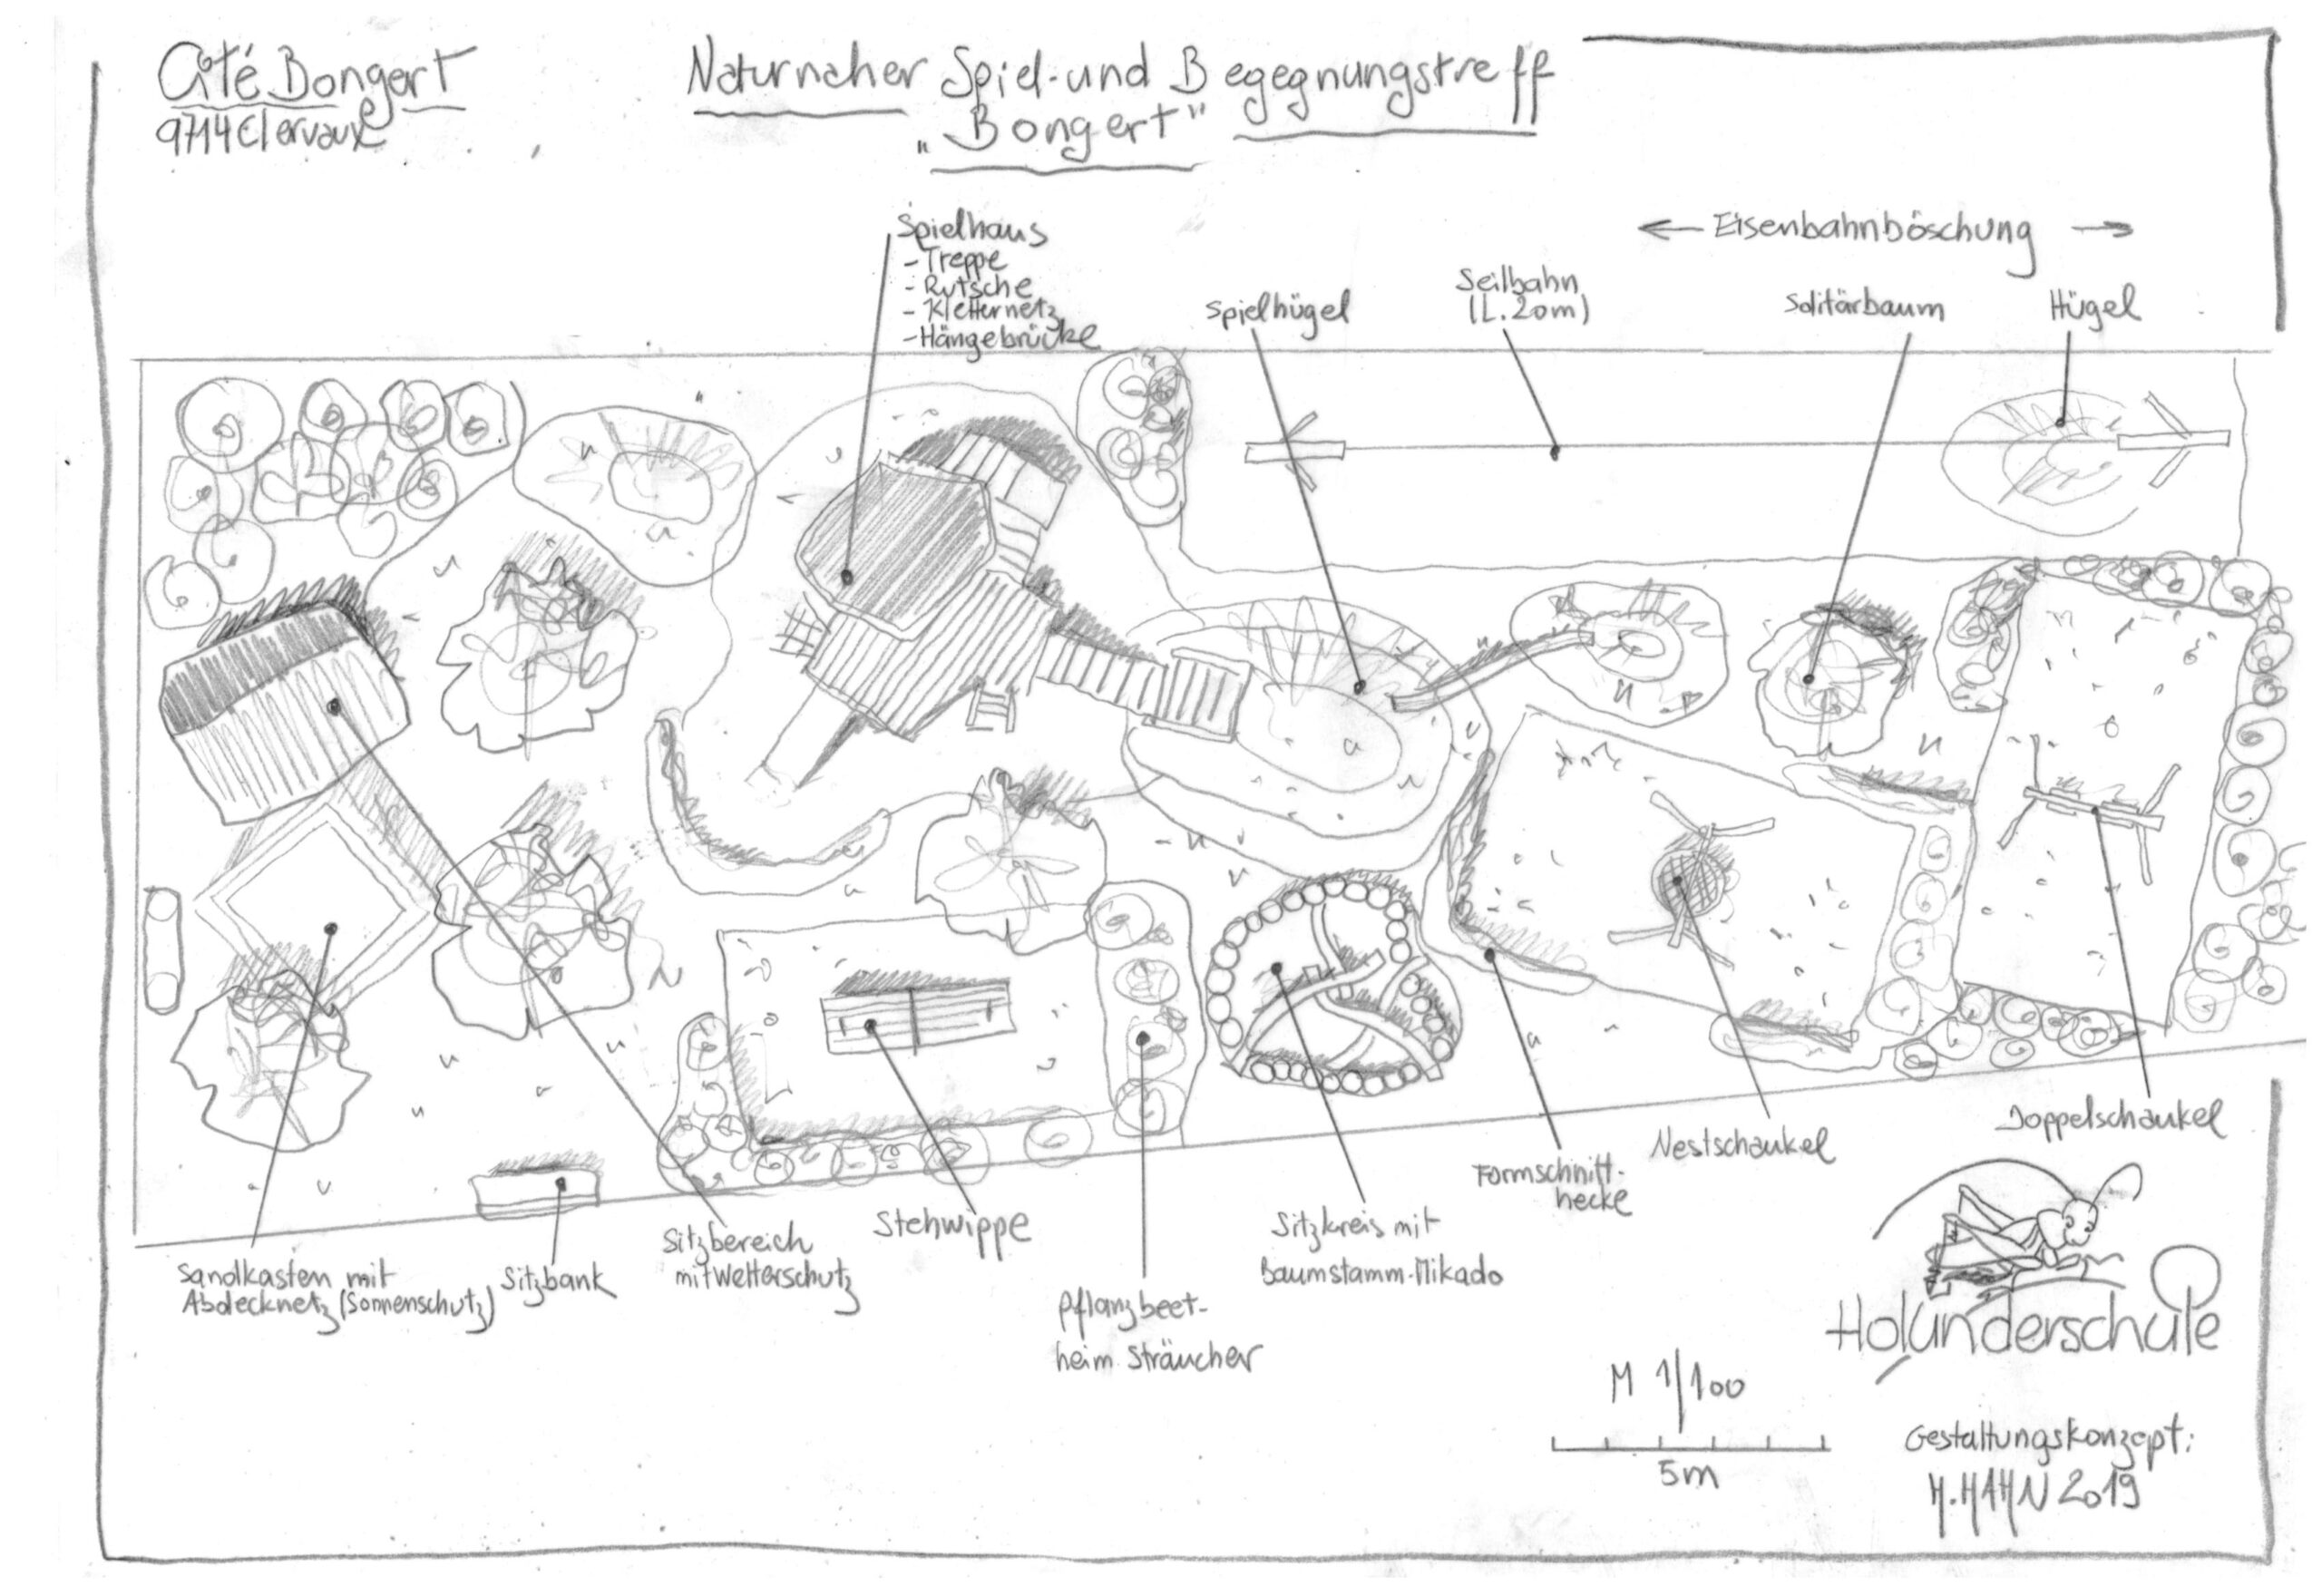 Cité Bongert
9714 Clervaux
Naturnaher Spiel- und Begegnungstreff
„Bongert"
Spielhaus
- Treppe
- Rutsche
- Kletternetz
- Hängebrücke
← Eisenbahnböschung →
Spielhügel
Seilbahn
(L. 20m)
Solitärbaum
Hügel
Sandkasten mit
Abdecknetz (Sonnenschutz)
Sitzbank
Sitzbereich
mit Wetterschutz
Stehwippe
Pflanzbeet-
heim. Sträucher
Sitzkreis mit
Baumstamm-Mikado
Formschnitt-
hecke
Nestschaukel
Doppelschaukel
Holunderschule
M 1/100
5m
Gestaltungskonzept:
M. HAHN 2019